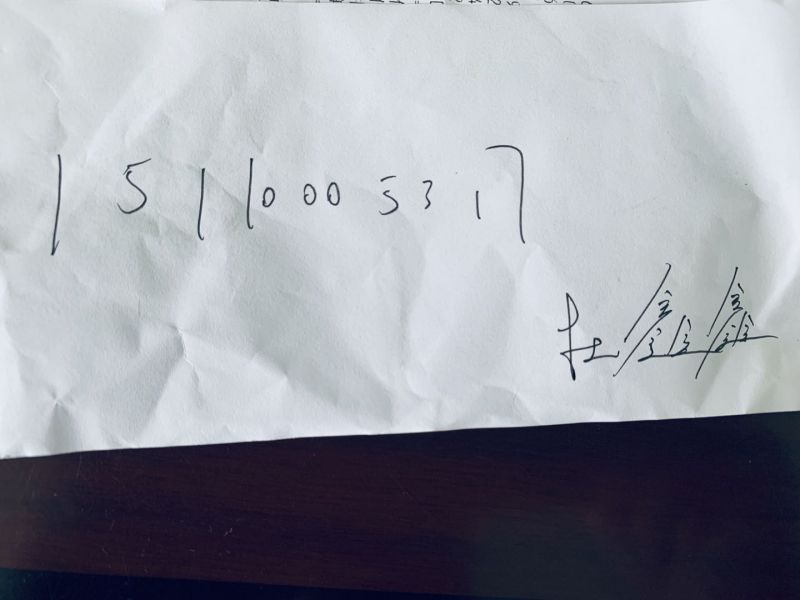 15110005317
杜鑫鑫